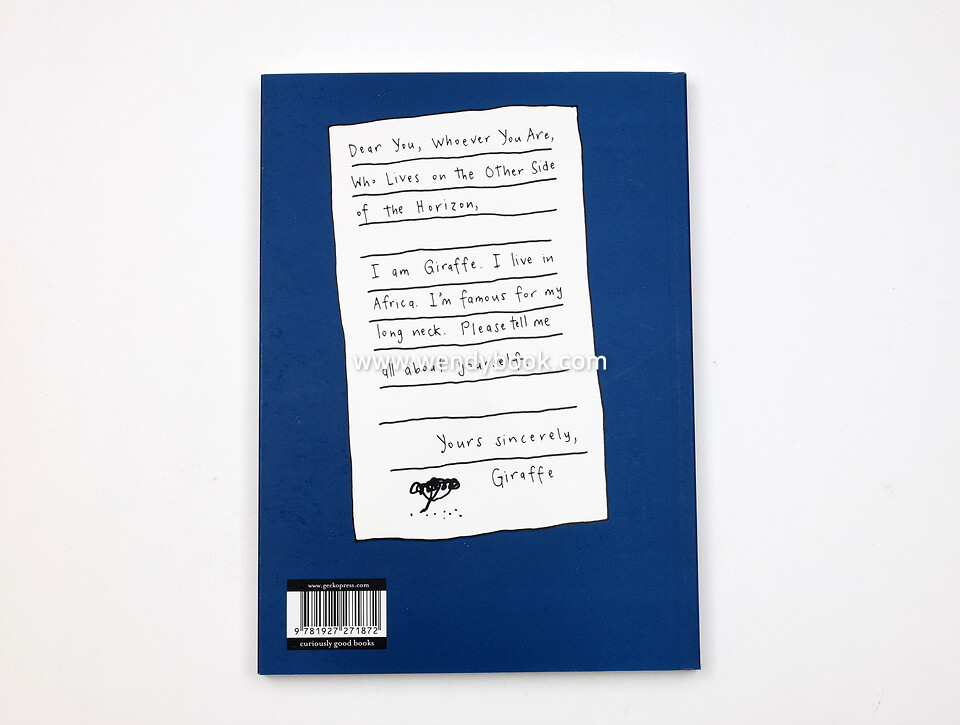 Dear You, Whoever You Are,
Who Lives on the Other Side
of the Horizon,
I am Giraffe. I live in
Africa. I'm famous for my
long neck. Please tell me
www.wendybook.com
all about yourself.
Yours sincerely,
Giraffe
www.geckopress.com
9 781927 271872
curiously good books